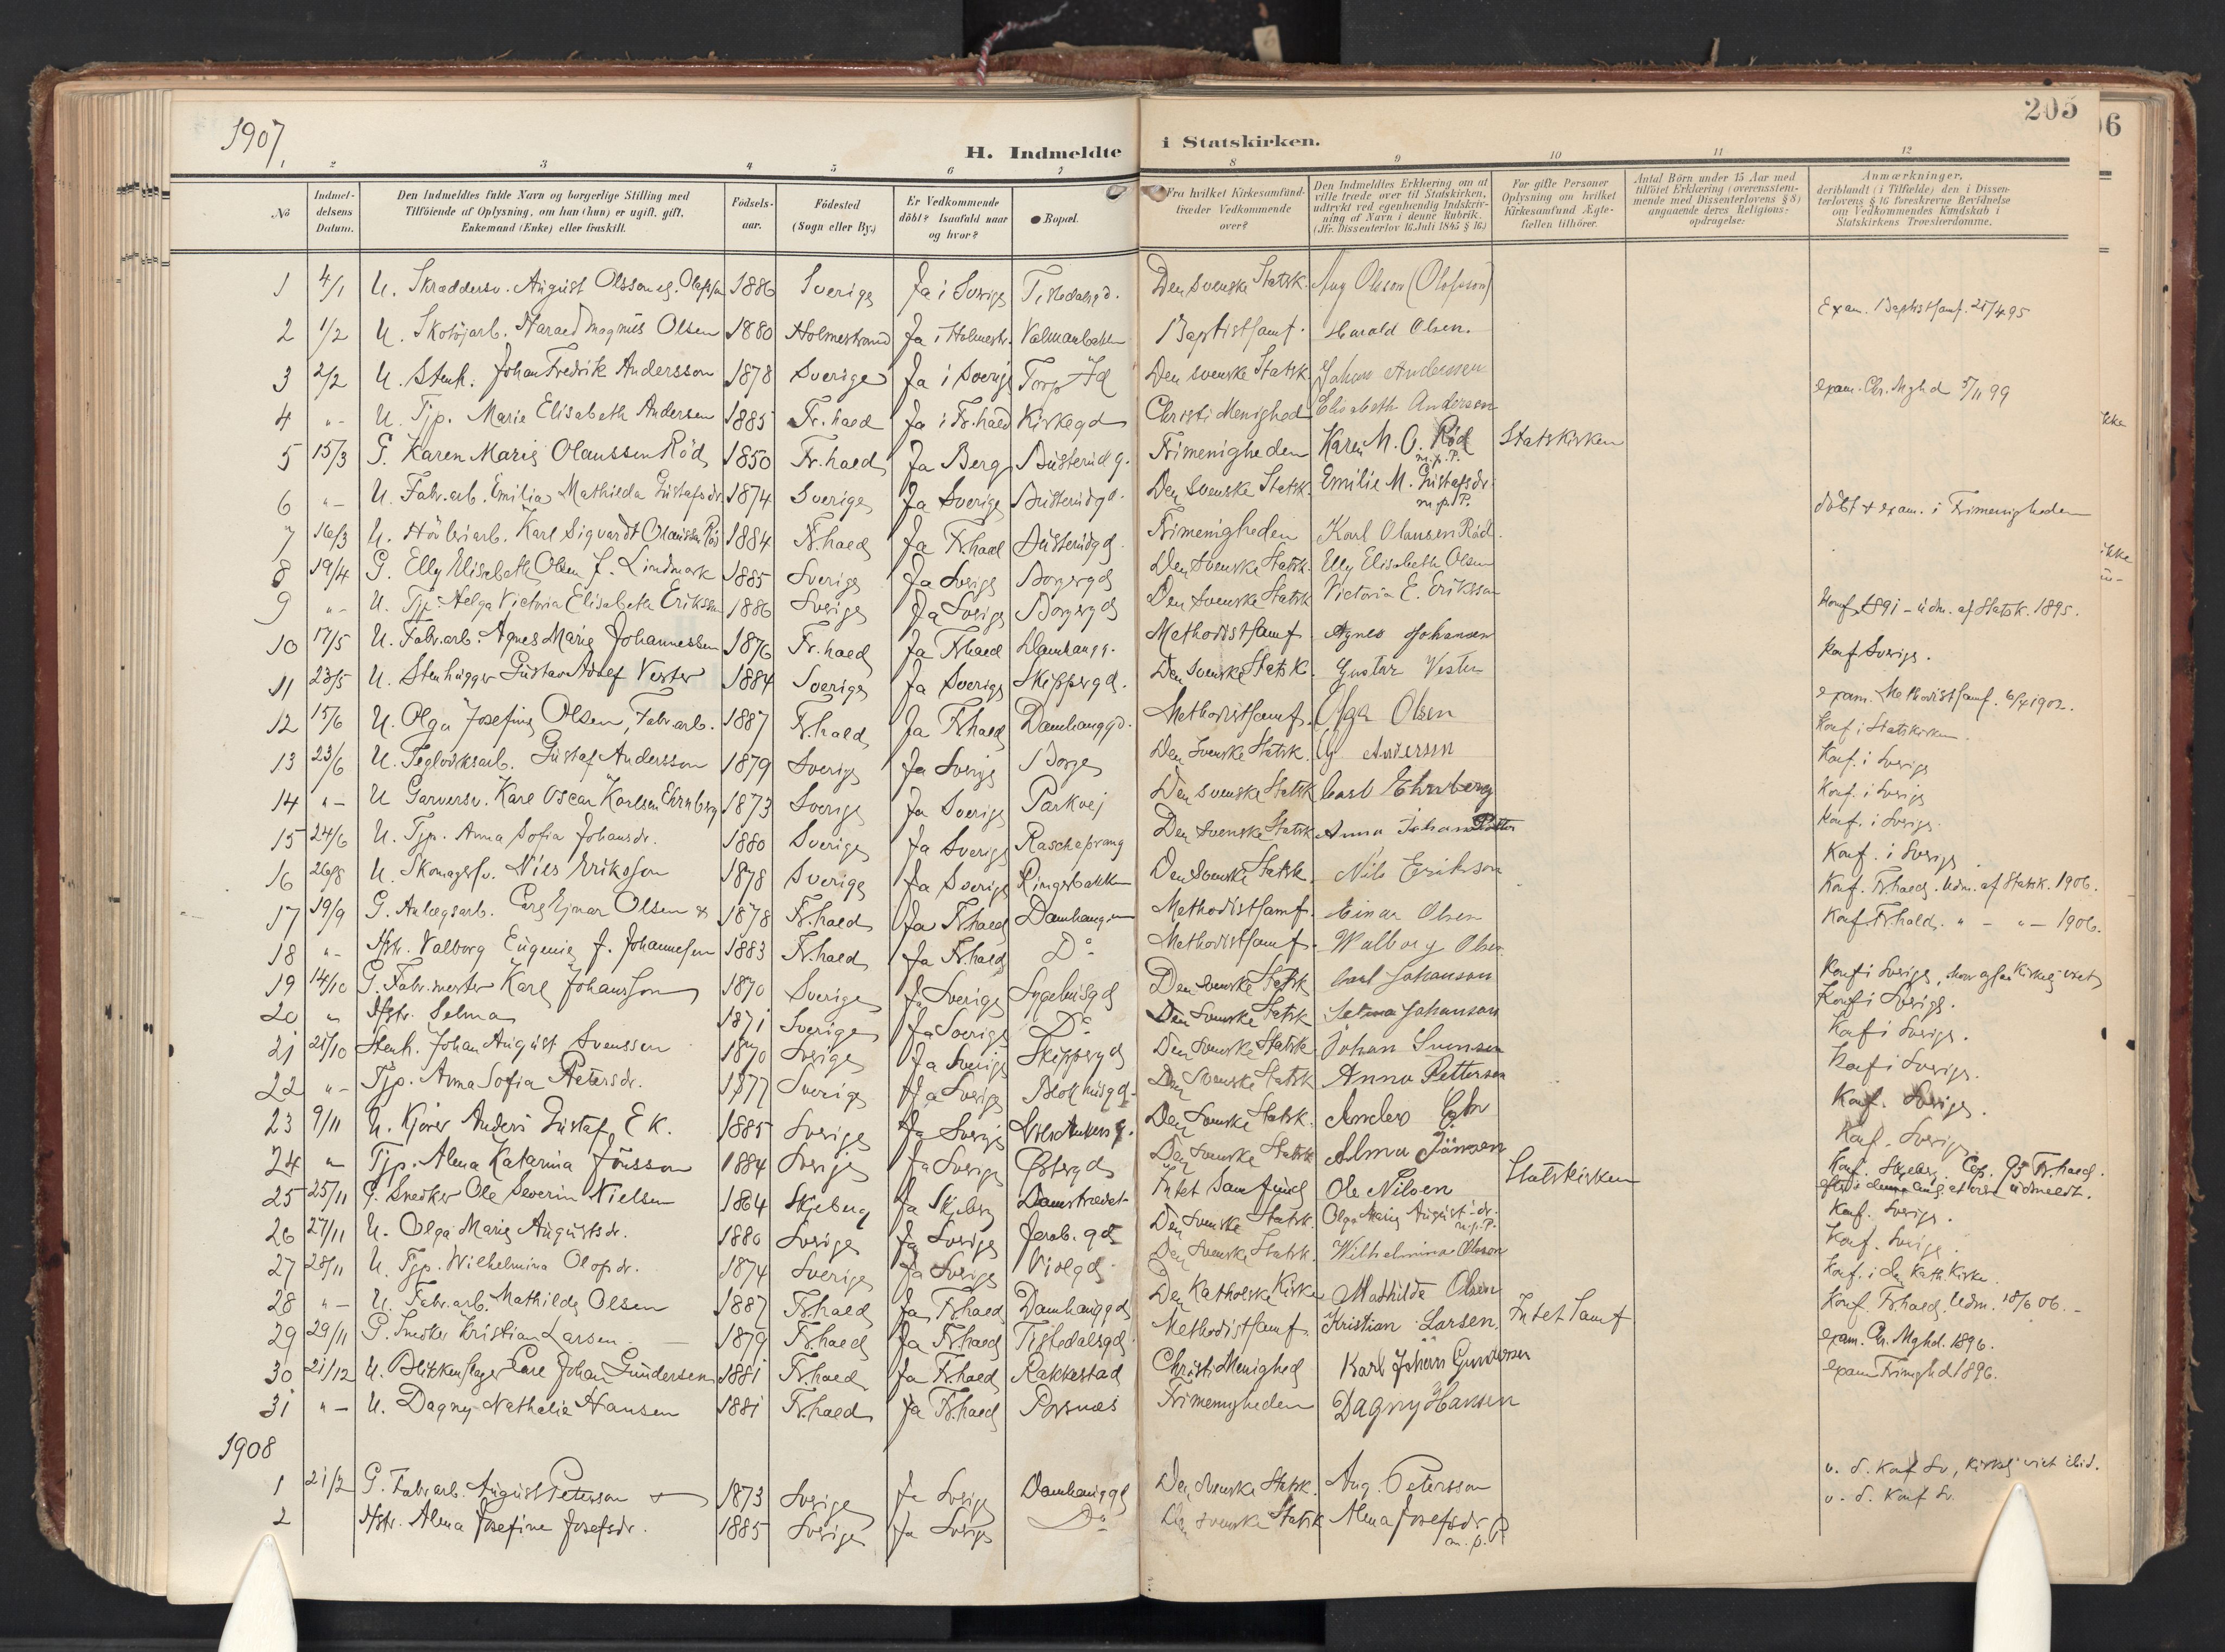 205
06
1907
H. Indmeldte i Statskirken.
1 2 3 4 5 6 7 8 9 10 11 12
No
Indmel-delsens Datum.
Den Indmeldtes fulde Navn og borgerlige Stilling med Tilföiende af Oplysning, om han (hun) er ugift, gift, Enkemand (Enke) eller fraskilt.
Födsels-aar.
Födested (Sogn eller By.)
Er Vedkommende döbt? Isaafald naar og hvor?
Bopæl.
Fra hvilket Kirkesamfund træder Vedkommende over?
Den Indmeldtes Erklæring om at ville træde over til Statskirken, udtrykt ved egenhændig Indskrivning af Navn i denne Rubrik. (Jfr. Dissenterlov 16 Juli 1845 § 16.)
For gifte Personer Oplysning om hvilket Kirkesamfund Ægtefællen tilhörer.
Antal Börn under 15 Aar med tilföiet Erklæring (overensstemmende med Dissenterlovens § 8) angaaende deres Religionsopdragelse:
Anmærkninger, deriblandt (i Tilfælde) den i Dissenterlovens § 16 foreskrevne Bevidnelse om Vedkommendes Kundskab i Statskirkens Troeslærdomme.
1 4/1 U. Skræddersv. August Olsson eg. Olofsson 1886 Sverige Ja i Sverige Tistedalsgd. Den svenske Statsk. Aug Olsson (Olofsson)
2 1/2 U. Skotöjarb. Harald Magnus Olsen 1880 Holmestrand Ja i Holmestr. Vaterlandbakken Baptistsamf. Harald Olsen. Exam. Baptistsamf. 21/4 95
3 2/2 U. Stenh. Johan Fredrik Andersson 1878 Sverige Ja i Sverige Torp Id Den svenske Statsk. Johan Andersson
4 "- U. Tjp. Marie Elisabeth Andersen 1885 Fr.hald Ja i Fr.hald Kirkegd Christi Menighed Elisabeth Andersen exam. Chr. Mghd 5/11 99
5 15/3 G. Karen Marie Olaussen Röd 1850 Fr.hald Ja Berg Busterudg. Frimenigheden Karen M. O. Röd m.p.P. Statskirken
6 "- U. Fabr.arb. Emilia Mathilda Gustafsdr. 1874 Sverige Ja Sverige Busterudgd. Den Svenske Statsk. Emilie M. Gustafsdr. m.p.P.
7 16/3 U. Hövleriarb. Karl Sigvardt Olaussen Röd 1884 Fr.hald Ja Fr.hald Busterudgd. Frimenigheden Karl Olausen Röd. döbt & exam. i Frimenigheden
8 19/4 G. Elly Elisabeth Olsen f. Lindmark 1885 Sverige Ja Sverige Borgergd Den Svenske Statsk. Elly Elisabeth Olsen
9 "- U. Tjp. Helga Victoria Elisabeth Eriksson 1886 Sverige Ja Sverige Borgergd Den Svenske Statsk Victoria E. Eriksson
10 17/5 U. Fabr.arb. Agnes Marie Johannessen 1876 Fr.hald Ja Fr.hald Damhaugg. Methodistsamf. Agnes Johansen Konf. 1891 - udm. af Statsk. 1895.
11 23/5 U. Stenhugger Gustav Adolf Vester 1884 Sverige Ja Sverige Skippergd. Den Svenske Statsk. Gustav Vester Konf. Sverige.
12 15/6 U. Olga Josefine Olsen, Fabr.arb. 1887 Fr.hald Ja Fr.hald Damhauggd. Methodistsamf. Olga Olsen exam. Methodistsamf. 6/4 1902.
Konf i Statskirken.
13 23/6 U. Teglverksarb. Gustaf Andersson 1879 Sverige Ja Sverige Borge Den Svenske Statsk. G Andersson Konf. i Sverige
14 "- U Garversv. Karl Oscar Karlsen Ehrnberg 1873 Sverige Ja Sverige Parkvej Den svenske Statsk Carl Ehrnberg Konf. i Sverige
15 24/6 U. Tjp. Anna Sofia Johansdr. 1880 Sverige Ja Sverige Raschesprang Den Svenske Statsk Anna Johansdotter Konf. i Sverige.
16 26/8 U. Skomagersv. Nils Eriksson 1878 Sverige Ja Sverige Ringerbakken Den Svenske Statsk. Nils Erikson Konf. i Sverige.
17 19/9 G. Anlægsarb. Carl Ejnar Olsen & 1878 Fr.hald Ja Fr.hald Damhaugen Methodistsamf. Einar Olsen Konf. Fr.hald. Udm. af Statsk. 1906.
18 "- Hstr. Valborg Eugenie f. Johannesen 1883 Fr.hald Ja Fr.hald Do Methodistsamf. Walborg Olsen Konf. Fr.hald. " - " - 1906.
19 14/10 G. Fabr.mester Karl Johansson 1870 Sverige Ja Sverige Sygehusgd Den Svenske Statsk Carl Johanson Konf i Sverige, kirkelig viet
20 " Hstr. Selma 1871 Sverige Ja Sverige Do Den Svenske Statsk Selma Johanson Konf i Sverige.
21 21/10 Stenh. Johan August Svenssen 1870 Sverige Ja Sverige Skippergd Den Svenske Statsk Johan Svensen Konf i Sverige.
22 "- Tjp. Anna Sofia Petersdr. 1877 Sverige Ja Sverige Blokhusgd. Den Svenske Statsk Anna Pettersen Konf i Sverige.
23 9/11 U. Kjörer Anders Gustaf Ek. 1885 Sverige Ja Sverige Den Svenske Statsk. Anders Ek Konf. Sverige.
24 " Tjp. Alma Katarina Jönsson 1884 Sverige Ja Sverige Östergd Den Svenske Statsk Alma Jönsson Konf. Sverige
25 25/11 G. Snedker Ole Severin Nielsen 1864 Skjeberg Ja Skjeberg Damstrædet Intet Samfund Ole Nilsen Statskirken Konf. Skjeberg. Cop. 95 Fr.hald. udmeldt.
26 27/11 U. Olga Marie Augustsdr. 1880 Sverige Ja Sverige Jacob. gd Den Svenske Statsk. Olga Marie Augustsdr. m.p.P. Konf. Sverige.
27 28/11 U. Tjp. Wilhelmina Olofsdr. 1874 Sverige Ja Sverige Violgd. Den Svenske Statsk. Wilhelmina Olsson Konf. Sverige.
28 "- U. Fabr.arb. Mathilde Olsen 1887 Fr.hald Ja Fr.hald Damhauggd Den Katholske Kirke Mathilde Olsen Konf. i den Kath. Kirke.
29 29/11 G. Snedker Kristian Larsen 1879 Fr.hald Ja Fr.hald Tistedalsgd. Methodistsamf. Kristian Larsen. Intet Samf Konf. Fr.hald. Udm. 18/6 06. -
30 21/12 U. Blikkenslager Carl Johan Gundersen 1881 Fr.hald Ja Fr.hald Rakkestad Christi Menighed Karl Johan Gundersen exam. Ch. Mghd. 1896.
31 "- U. Dagny Nathalia Hansen 1881 Fr.hald Ja Fr.hald Porsnæs Frimenigheden Dagny Hansen exam Frimghd 1896.
1908
1 21/2 G. Fabr.arb. August Peterson & 1873 Sverige Ja Sverige Damhauggd Den svenske Statsk. Aug. Petersson v. S. Konf Sv, kirkel. viet ibid.
2 Hstr. Alma Josefine Josefsdr. 1885 Sverige Ja Sverige Do Den svenske Statsk Alma Josefsdr m.p.P. v. S. Konf Sv.